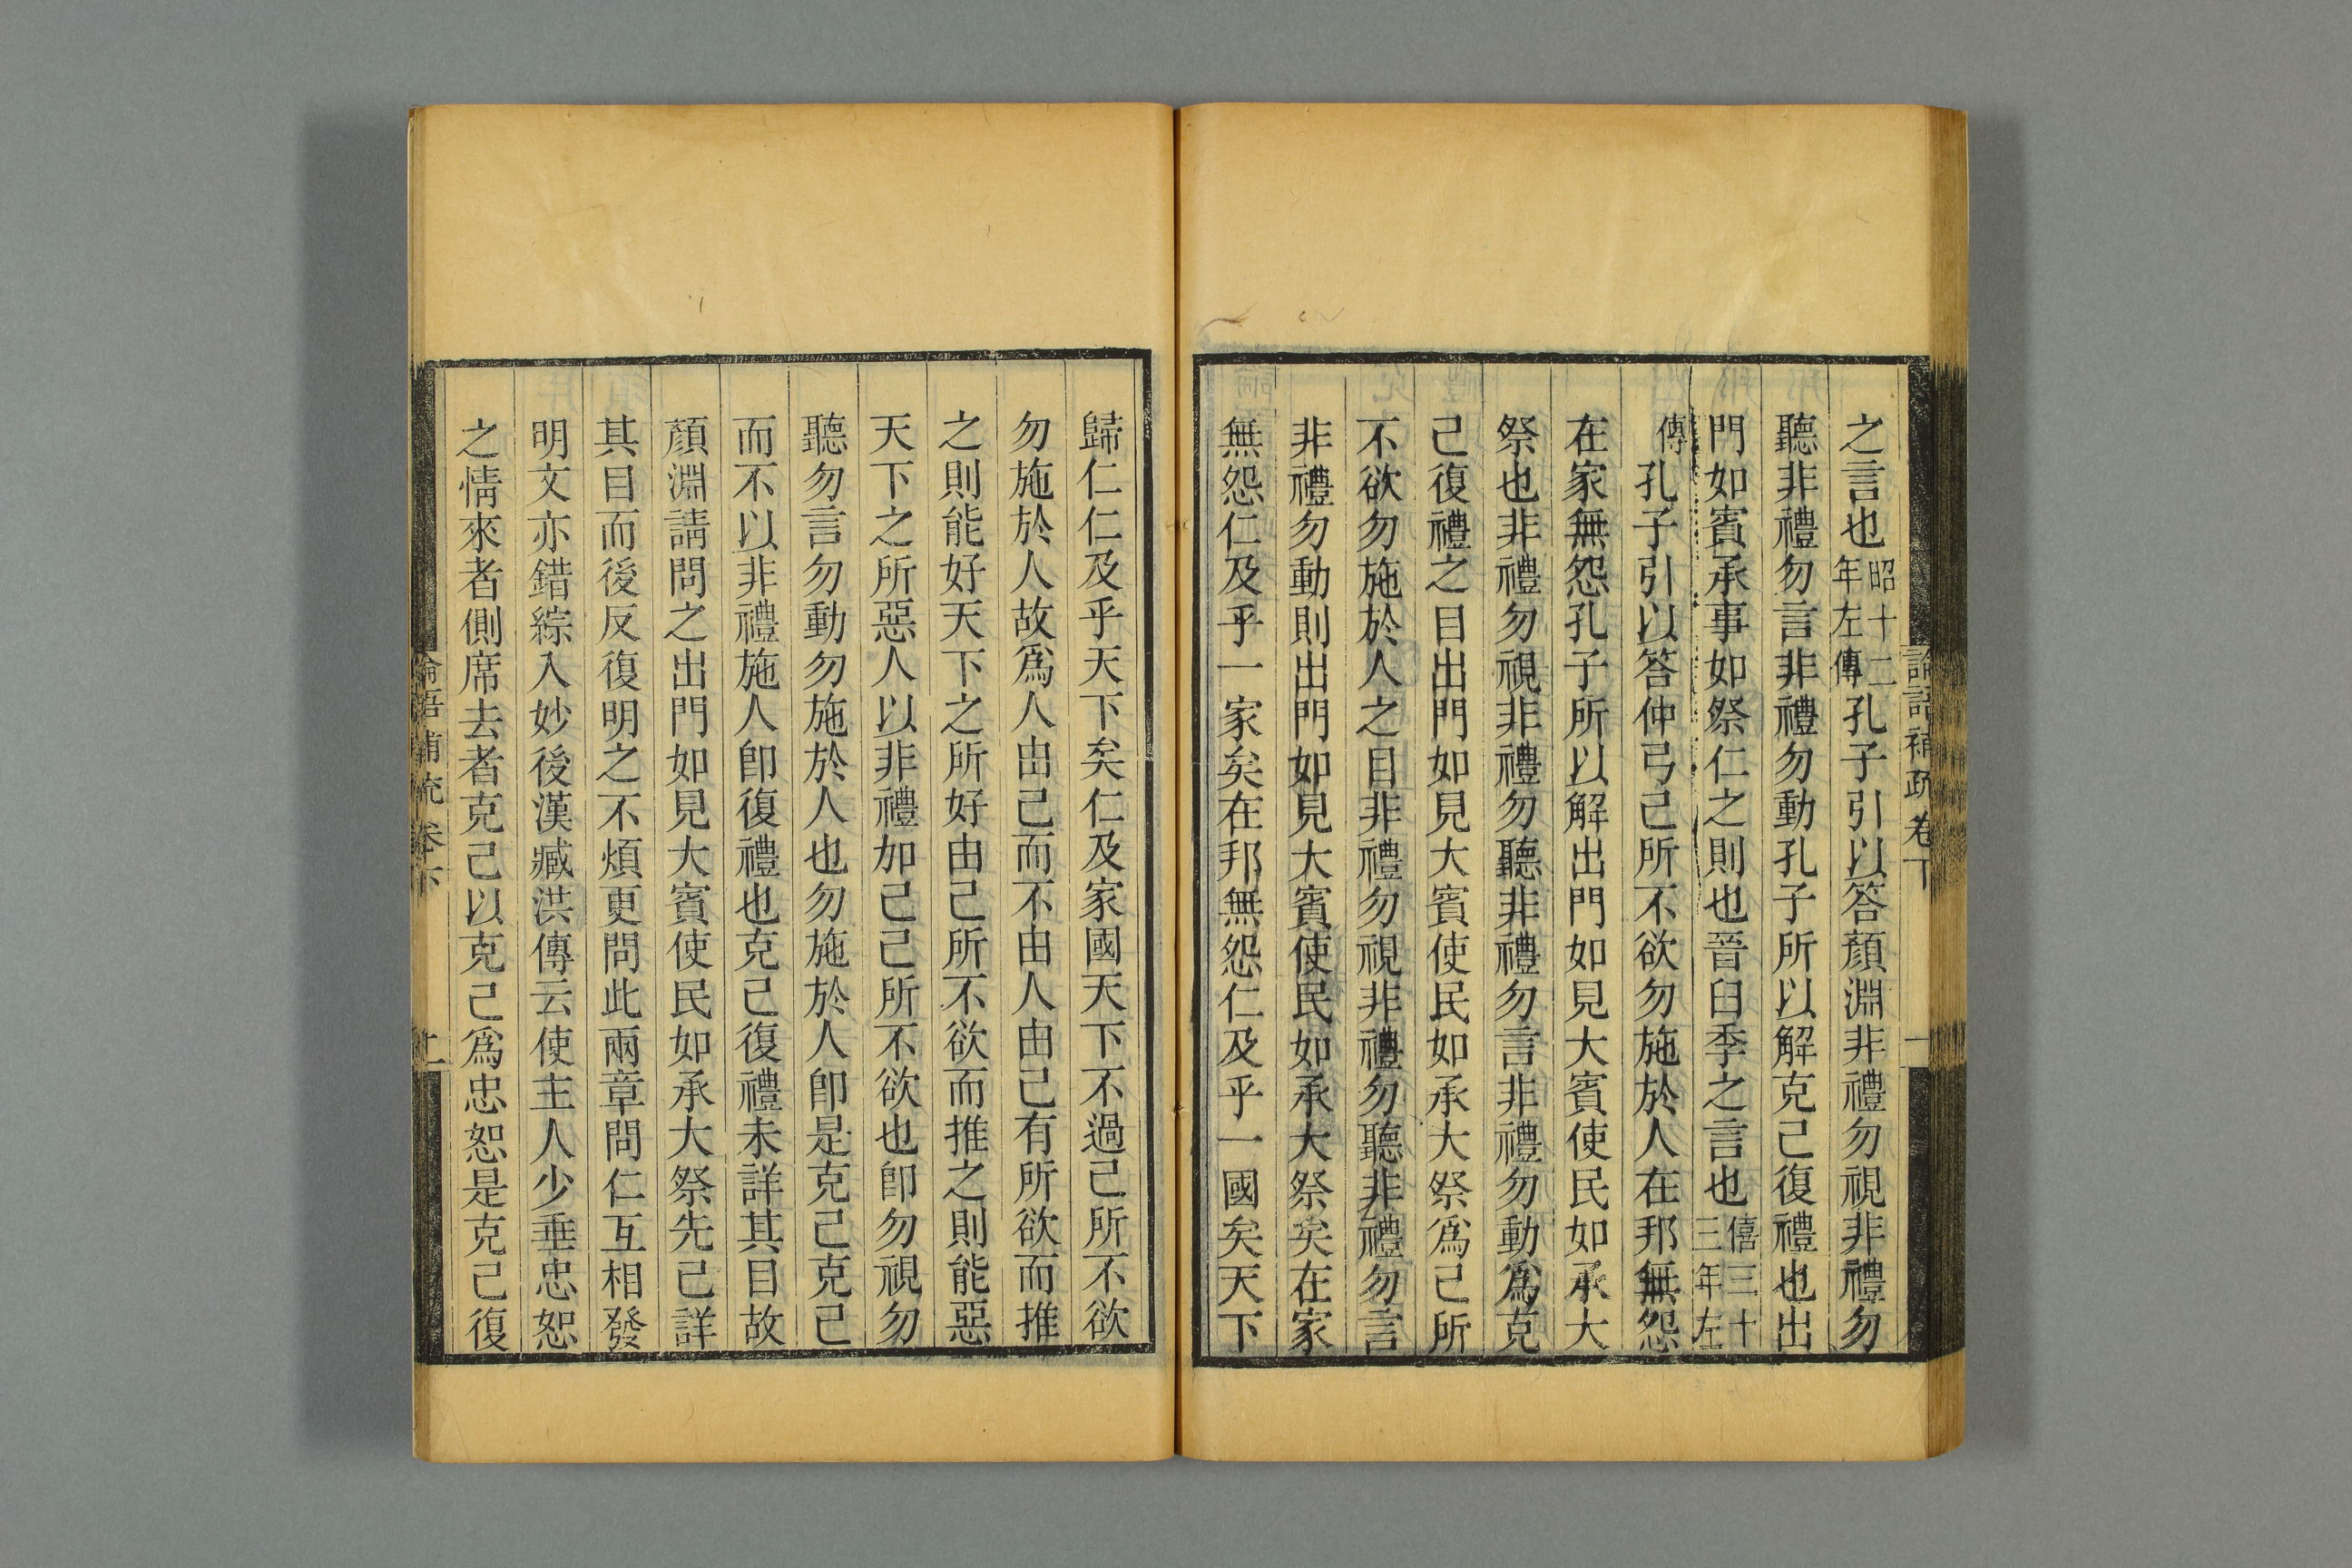 之言也昭十二年左傳孔子引以答顏淵非禮勿視非禮勿
聽非禮勿言非禮勿動孔子所以解克己復禮也出
門如賓承事如祭仁之則也晉臼季之言也僖三十三年左
傳孔子引以答仲弓己所不欲勿施於人在邦無怨
在家無怨孔子所以解出門如見大賓使民如承大
祭也非禮勿視非禮勿聽非禮勿言非禮勿動爲克
己復禮之目出門如見大賓使民如承大祭爲己所
不欲勿施於人之目非禮勿視非禮勿聽非禮勿言
非禮勿動則出門如見大賓使民如承大祭矣在家
無怨仁及乎一家矣在邦無怨仁及乎一國矣天下
論語補疏卷下
一
歸仁仁及乎天下矣仁及家國天下不過己所不欲
勿施於人故爲人由己而不由人由己有所欲而推
之則能好天下之所好由己所不欲而推之則能惡
天下之所惡人以非禮加己己所不欲也卽勿視勿
聽勿言勿動勿施於人也勿施於人卽是克己克己
而不以非禮施人卽復禮也克己復禮未詳其目故
顏淵請問之出門如見大賓使民如承大祭先己詳
其目而後反復明之不煩更問此兩章問仁互相發
明文亦錯綜入妙後漢臧洪傳云使主人少垂忠恕
之情來者側席去者克己以克己爲忠恕是克己復
論語補疏卷下